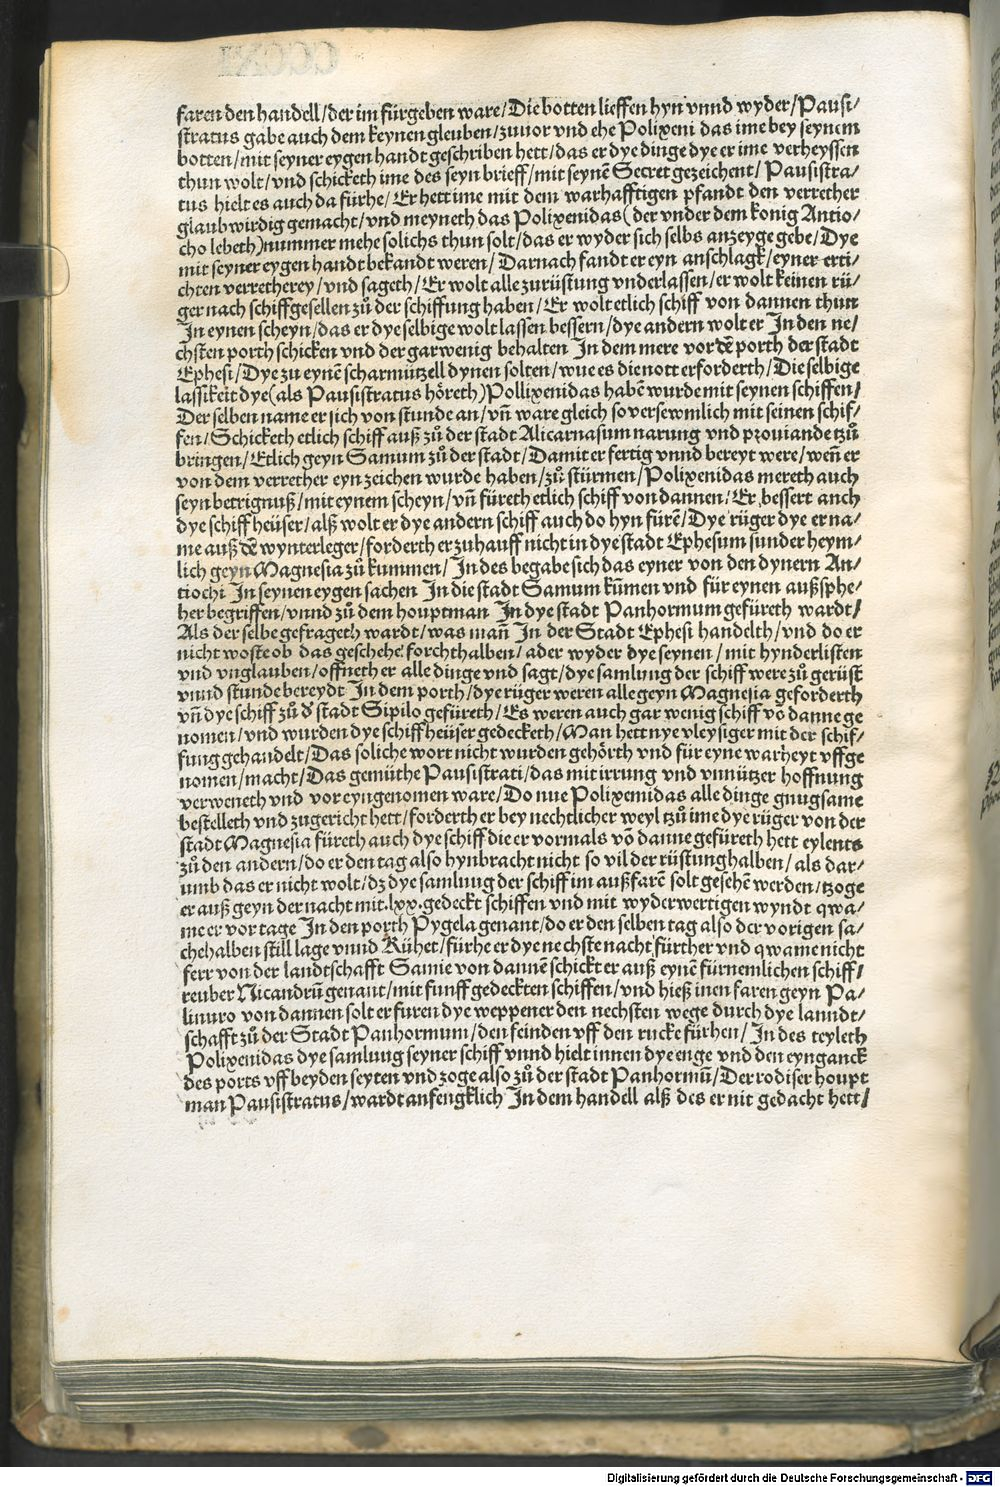 faren den handell/der im fürgeben ware/Die botten lieffen hyn vnnd wyder/Pausi⸗
stratus gabe auch dem keynen gleuben/zuuor vnd ehe Polixeni das ime bey seynem
botten/mit seyner eygen handt geschriben hett/das er dye dinge dye er ime verheyssen
thun wolt/vnd schicketh ime des seyn brieff/mit seynē Secret gezeichent/Pausistra⸗
tus hielt es auch da fürhe/Er hett ime mit dem warhafftigen pfandt den verrether
glaubwirdig gemacht/vnd meyneth das Polixenidas(der vnder dem konig Antio⸗
cho lebeth)nummer mehe solichs thun solt/das er wyder sich selbs anzeyge gebe/Dye
mit seyner eygen handt bekandt weren/Darnach fandt er eyn anschlagk/eyner erti⸗
chten verretherey/vnd sageth/Er wolt alle zurüstung vnderlassen/er wolt keinen rü⸗
ger nach schiffgesellen zů der schiffung haben/Er wolt etlich schiff von dannen thun
In eynen scheyn/das er dye selbige wolt lassen bessern/dye andern wolt er In den ne⸗
chsten porth schicken vnd der gar wenig behalten In dem mere vor dē porth der stadt
Ephesi/Dye zu eynē scharmützell dynen solten/wue es die nott erforderth/Die selbige
lassikeit dye(als Pausistratus höreth)Pollixenidas habē wurde mit seynen schiffen/
Der selben name er sich von stunde an/vñ ware gleich so versewmlich mit seinen schif⸗
fen/Schicketh etlich schiff auß zů der stadt Alicarnasum narung vnd prouiande tzů
bringen/Etlich geyn Samum zů der stadt/Damit er fertig vnnd bereyt were/weñ er
von dem verrether eyn zeichen wurde haben/zů stürmen/Polixenidas mereth auch
seyn betrignuß/mit eynem scheyn/vñ füreth etlich schiff von dannen/Er bessert anch
dye schiff heüser/alß wolt er dye andern schiff auch do hyn fürē/Dye rüger dye er na⸗
me auß dē wynterleger/forderth er zuhauff nicht in dye stadt Ephesum sunder heym⸗
lich geyn Magnesia zů kummen/In des begabe sich das eyner von den dynern An⸗
tiochi In seynen eygen sachen In die stadt Samum kūmen vnd für eynen außsphe⸗
her begriffen/vnnd zů dem houptman In dye stadt Panhormum gefüreth wardt/
Als der selbe gefrageth wardt/was mañ In der Stadt Ephesi handelth/vnd do er
nicht woste ob das geschehe forchthalben/ader wyder dye seynen/mit hynderlisten
vnd vnglauben/offneth er alle dinge vnd sagt/dye samlung der schiff were zů gerüst
vnnd stunde bereydt In dem porth/dye rüger weren alle geyn Magnesia geforderth
vñ dye schiff zů d' stadt Sipilo gefüreth/Es weren auch gar wenig schiff vō danne ge
nomen/vnd wurden dye schiff heüser gedecketh/Man hett nye vleysiger mit der schif⸗
fung gehandelt/Das soliche wort nicht wurden gehörth vnd für eyne warheyt vffge
nomen/macht/Das gemüthe Pausistrati/das mit irrung vnd vnnützer hoffnung
verweneth vnd vor eyngenomen ware/Do nue Polixemidas alle dinge gnugsame
bestelleth vnd zugericht hett/forderth er bey nechtlicher weyl tzů ime dye rüger von der
stadt Magnesia füreth auch dye schiff die er vormals vō danne gefüreth hett eylents
zů den andern/do er den tag also hynbracht nicht so vil der rüstung halben/als dar⸗
umb das er nicht wolt/dz dye samlung der schiff im außfarē solt gesehē werden/tzoge
er auß geyn der nacht mit.lxx.gedeckt schiffen vnd mit wyderwertigen wyndt qwa⸗
me er vor tage In den porth Pygela genant/do er den selben tag also der vorigen sa⸗
chehalben still lage vnnd Rühet/fürhe er dye nechste nacht fürther vnd qwame nicht
ferr von der landtschafft Samie von dannē schickt er auß eynē fürnemlichen schiff⸗
reuber Nicandrū genant/mit funff gedeckten schiffen/vnd hieß inen faren geyn Pa⸗
linuro von dannen solt er furen dye weppener den nechsten wege durch dye lanndt⸗
schafft zů der Stadt Panhormum/den feinden vff den rucke fürhen/In des teyleth
Polixenidas dye samlung seyner schiff vnnd hielt innen dye enge vnd den eynganck
des ports vff beyden seyten vnd zoge also zů der stadt Panhormū/Der rodiser houpt
man Pausistratus/wardt anfengklich In dem handell alß des er nit gedacht hett/
Digitalisierung gefördert durch die Deutsche Forschungsgemeinschaft - DFG